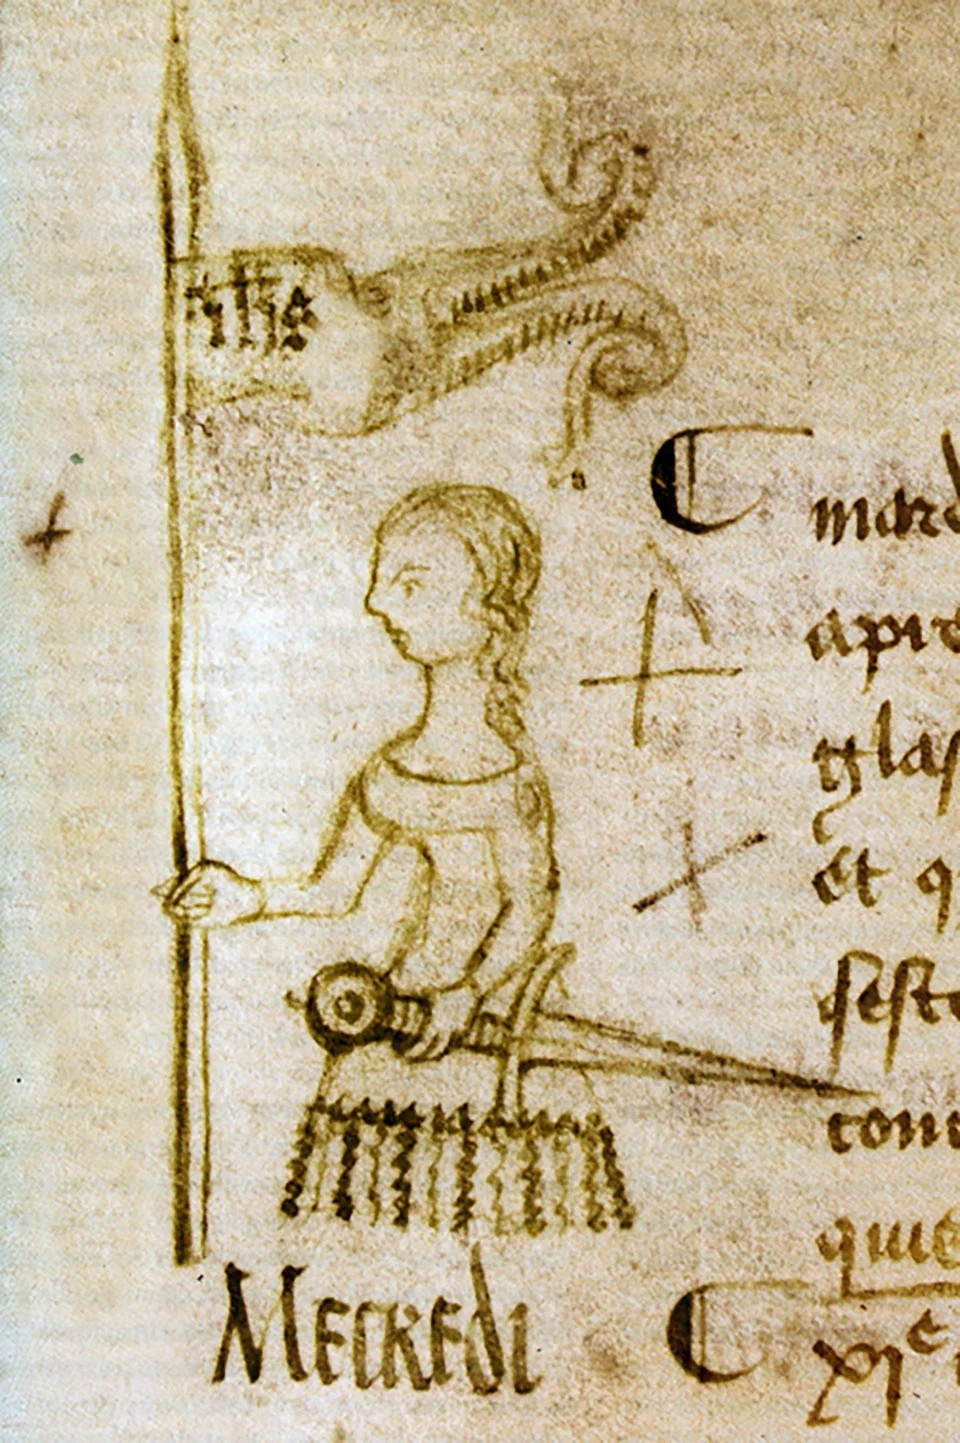 ihs
mard
apre
glas
et q
feste
cont
que
Mecredi
xie